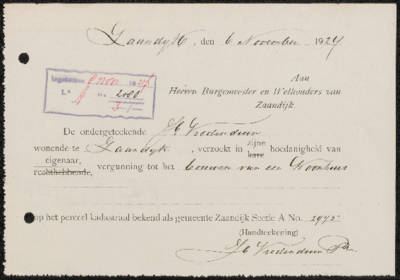 Zaandijk, den 6 November 1924
Aan
Heeren Burgemeester en Wethouders van
Zaandijk.
Legeskosten
L.a No. 2080
3.-
De ondergeteekende Jb Vredenduin
wonende te Zaandijk, verzoekt in zijne hoedanigheid van
haar
eigenaar,
rechthebbende, vergunning tot het bouwen van een Woonhuis
op het perceel kadastraal bekend als gemeente Zaandijk Sectie A No. 2972
(Handteekening)
Jb Vredenduin Pzn.